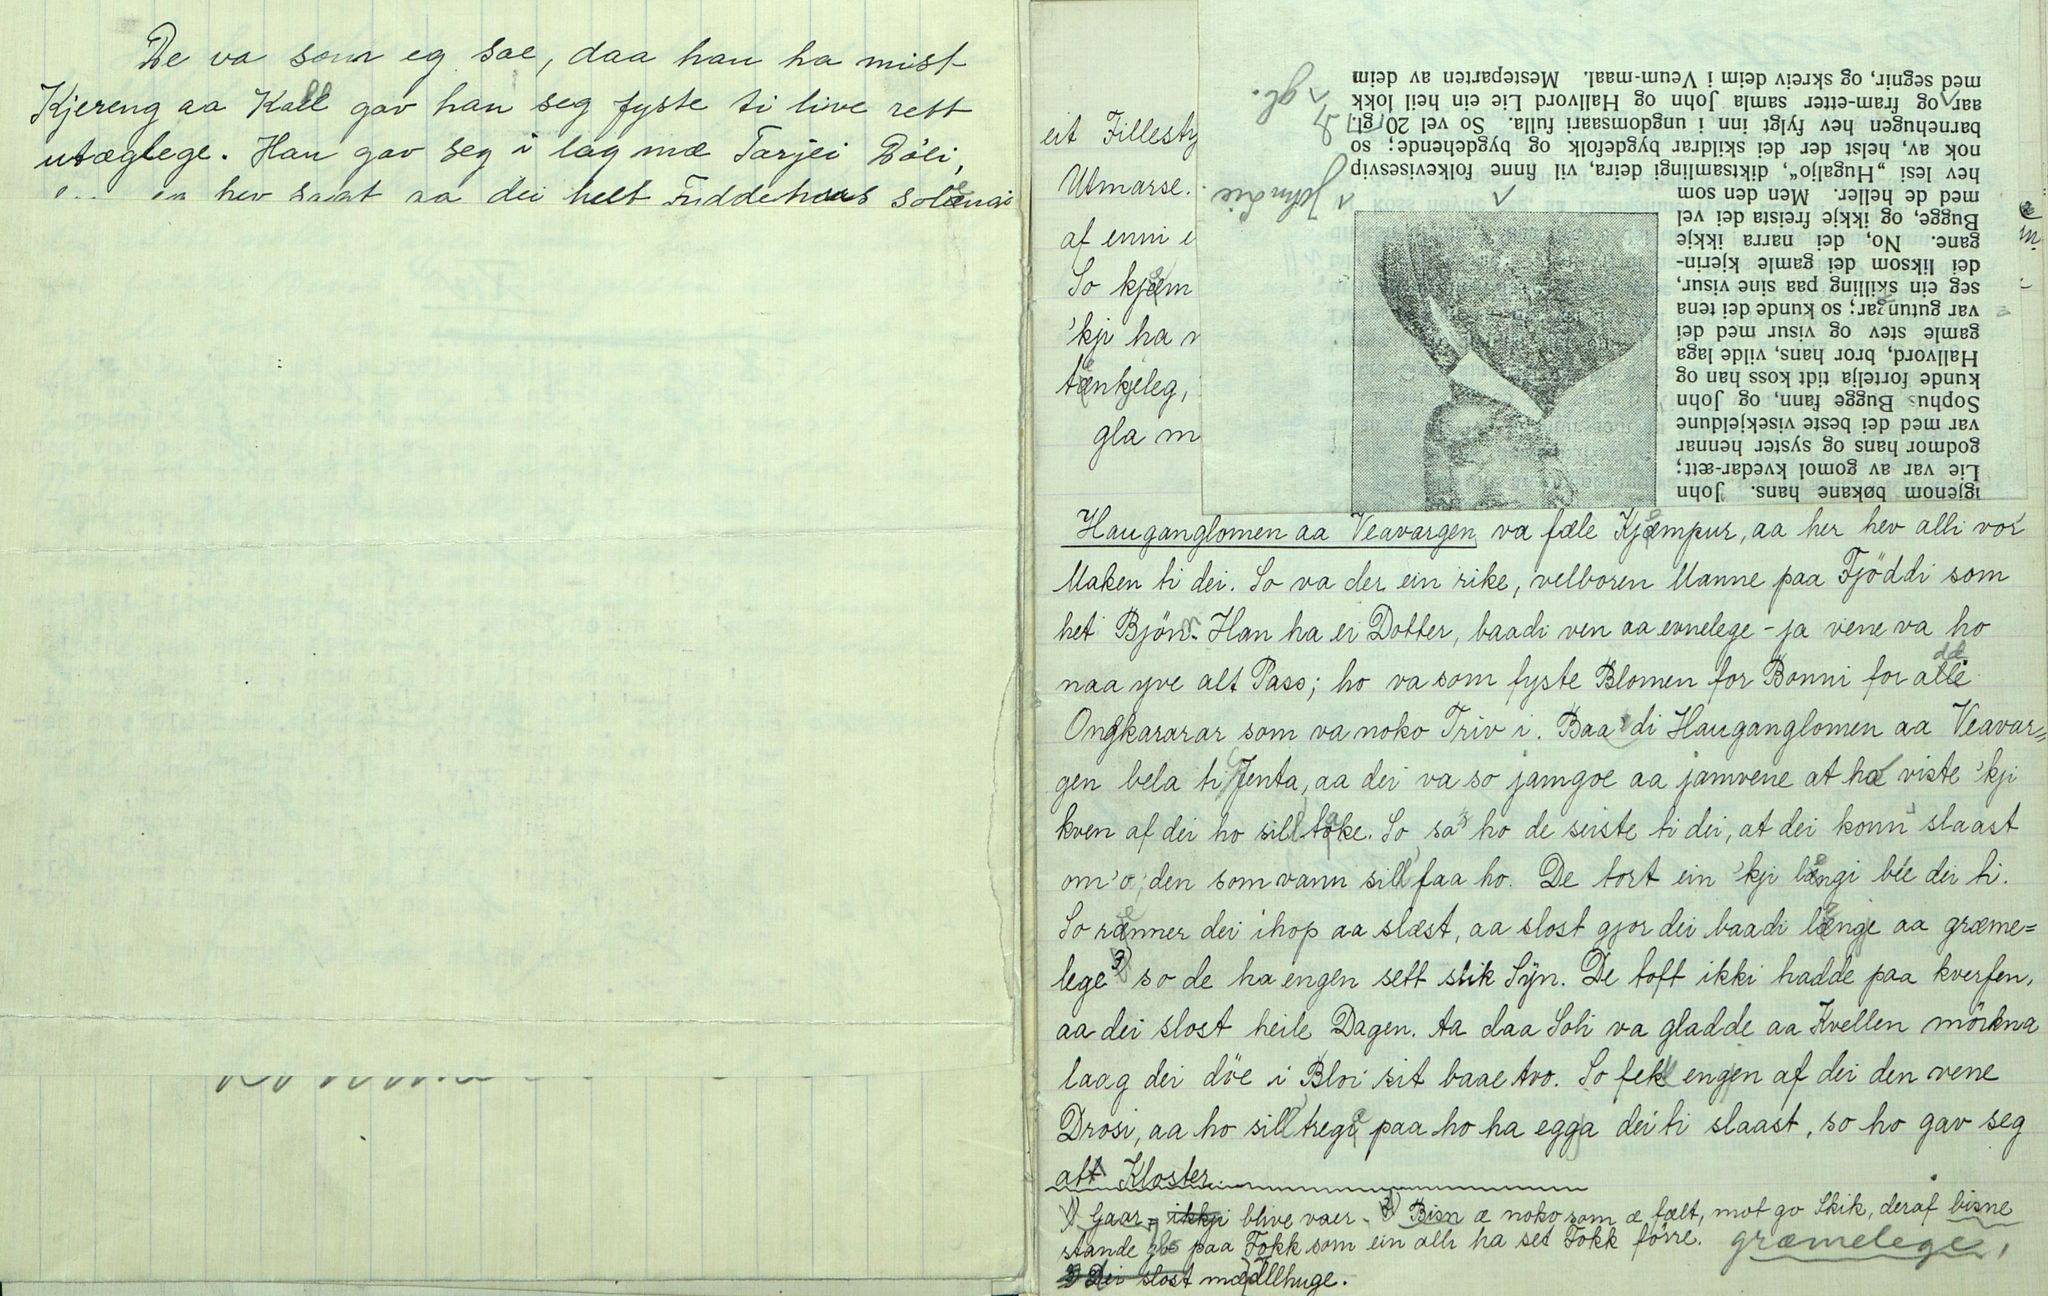 De va som eg sae, daa han ha mist
Kjereng aa Kall gav han seg fyste ti live rett
utæglege. Han gav seg i lag mæ Tarjei Böli,
hev sagt aa dei helt Fiddehaus
eit Fillesty
Utmarse.
af enni e
So kjæm
'kji ha v
tænkjeleg,
gla m
igjenom bøkane hans. John
Lie var av gomol kvedar-ætt;
godmor hans og syster hennar
var med dei beste visekjeldune
Sophus Bugge fann, og John
kunde fortelja tidt koss han og
Hallvord, bror hans, vilde laga
gamle stev og visur med dei
var gutungar; so kunde dei tena
seg ein skilling paa sine visur,
dei liksom dei gamle kjerin-
gane. No, dei narra ikkje
Bugge, og ikkje freista dei vel
med de heller. Men den som
hev lesi „Hugaljo“, diktsamlingi deira, vil finne folkevisesvip
nok av, helst der dei skildrar bygdefolk og bygdehende; so
barnehugen hev fylgt inn i ungdomsaari fulla. So vel 20 gl.
aar og fram-etter samla John og Hallvord Lie ein heil lokk
med segnir, og skreiv deim i Veum-maal. Mesteparten av deim
gl.
John Lie
Hauganglomen aa Veavargen va fæle Kjæmpur, aa her hev alli vor
Maken ti dei. So va der ein rike, velboren Manne paa Fjöddi som
het Bjönn. Han ha ei Dotter, baadi ven aa evnelege - ja vene va ho
naa yve alt Pass; ho va som fyste Blomen for Bonni for alle
Ongkararar som va noko Triv i. Baadi Hauganglomen aa Veavar=
gen bela ti Jenta, aa dei va so jamgoe aa jamvene at ho viste 'kji
kven af dei ho sill take. So sa' ho de seiste ti dei, at dei konn slaast
om 'o; den som vann sill faa ho. De tort ein 'kji længi bie dei ti.
So rænner dei ihop aa slæst, aa slost gjor dei baadi længje aa græme=
lege 3) so de ha engen sett slik Syn. De toft ikki hadde paa kverfen,
aa dei slost heile Dagen. Aa daa Soli va gladde aa Kvellen mörkna
laag dei döe i Bloi sit baae tvo. So fekk engjen af dei den vene
Drosi, aa ho sill tregi paa ho ha eggja dei ti slaast, so ho gav seg
att Kloster.
1) Gaar - ikkji blive vaer. 2) Bisn æ noko som æ fælt, mot go Skik, deraf bisne
stande paa Fokk som ein alli ha set Fokk förre. græmelege,
3) Dei slost mæ Illhuge.